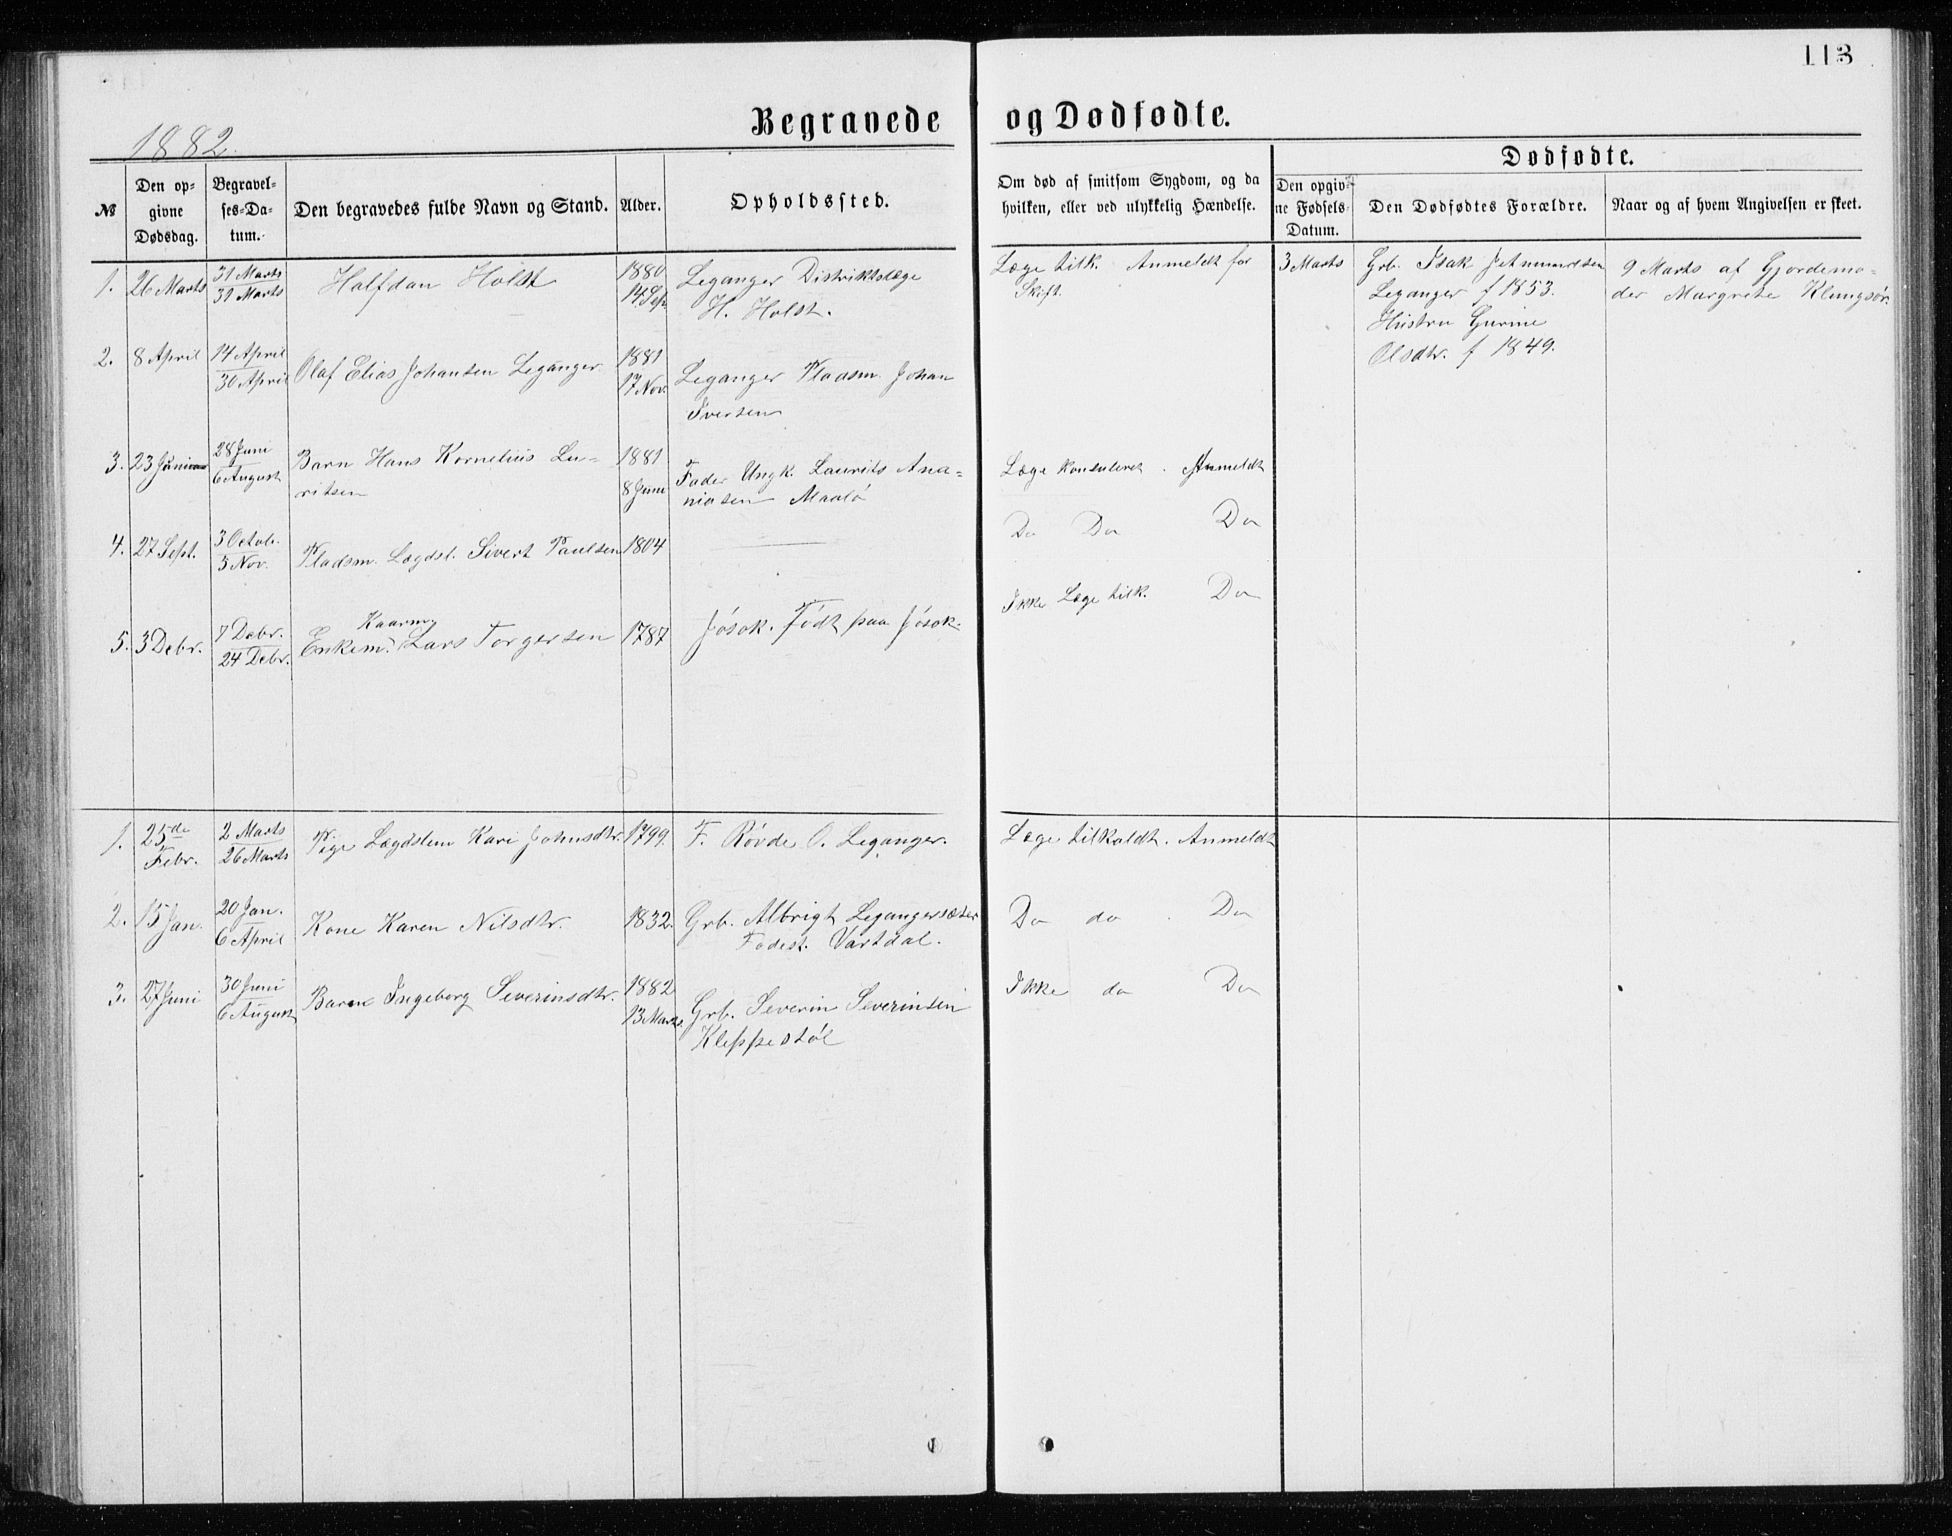 113
1882.
Begravede og Dødfødte.
№
Den op-
givne
Dødsdag.
Begravel-
ses-Da-
tum.
Den begravedes fulde Navn og Stand.
Alder.
Opholdssted.
Om død af smitsom Sygdom, og da
hvilken, eller ved ulykkelig Hændelse.
Dødfødte.
Den opgiv-
ne Fødsels-
Datum.
Den Dødfødtes Forældre.
Naar og af hvem Angivelsen er skeet.
1. 26 Marts
31 Marts
31 Marts
Halfdan Holst
1880
14 Sep.
Leganger Distriktslæge
H. Holst.
Læge tilk. Anmeldt for
Skift.
3 Marts
Grb. Isak
Leganger f 1853.
Hustru Gurine
Olsdtr. f 1849.
9 Marts af Gjordemo-
der Margrete Klungsør.
2. 8 April
14 April
30 April
Olaf Elias Johansen Leganger.
1881
17 Nov.
Leganger Pladsm. Johan
Iversen
3. 23 Juni
28 Juni
6 August
Barn Hans Kornelius Lau-
ritsen
1881
8 Juni
Fader Ungk. Laurits Ana-
niasen Maalø
Læge konsuleret. Anmeldt
4. 27 Sept.
3 Octob.
5 Nov.
Pladsm. Lægdsl. Sivert Paulsen
1804
Do Do Do
5. 3 Debr.
7 Debr.
24 Debr.
Kaarmg
Enkem. Lars Torgersen
1787
Jøsok. Født paa Jøsok.
Ikke Læge tilk. Do
1. 25de
Febr.
2 Marts
26 Marts
Pige Lægdslem Kari Johnsdtr.
1799.
F. Røvde O. Leganger.
Læge tilkaldt. Anmeldt
2. 15 Jan.
20 Jan.
6 April
Kone Karen Nilsdtr.
1832.
Grb. Albrigt Legangersæter
Fødest. Vartdal.
Do do. Do
3. 27 Juni
30 Juni
6 August
Barn Ingeborg Severinsdtr.
1882
13 Marts
Grb. Severin Severinsen
Kleppestøl
Ikke do Do